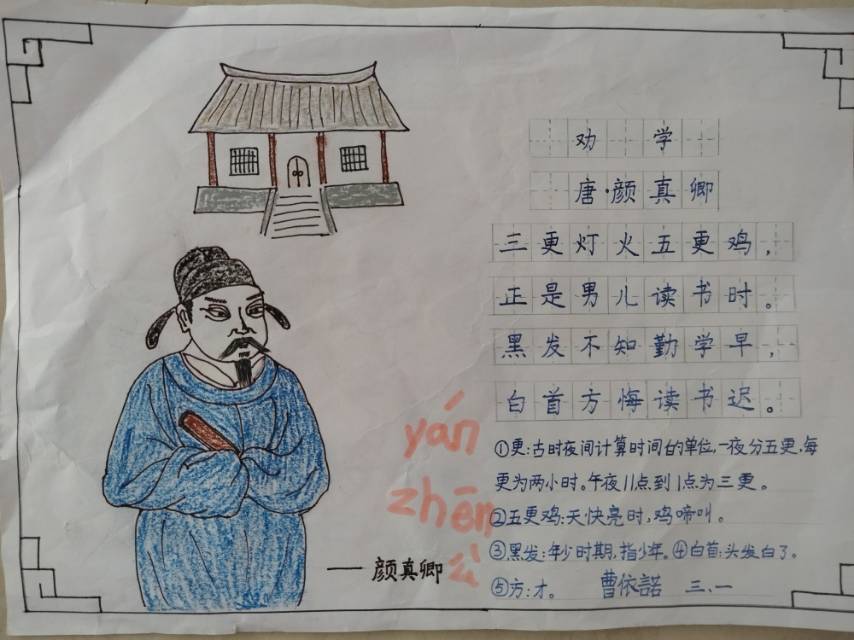 劝学
唐·颜真卿
三更灯火五更鸡,
正是男儿读书时。
黑发不知勤学早,
白首方悔读书迟。
①更:古时夜间计算时间的单位,一夜分五更,每
更为两小时。午夜11点到1点为三更。
②五更鸡:天快亮时,鸡啼叫。
③黑发:年少时期,指少年。④白首:头发白了。
⑤方:才。 曹依諾 三、一
yán
zhēn
公
——颜真卿